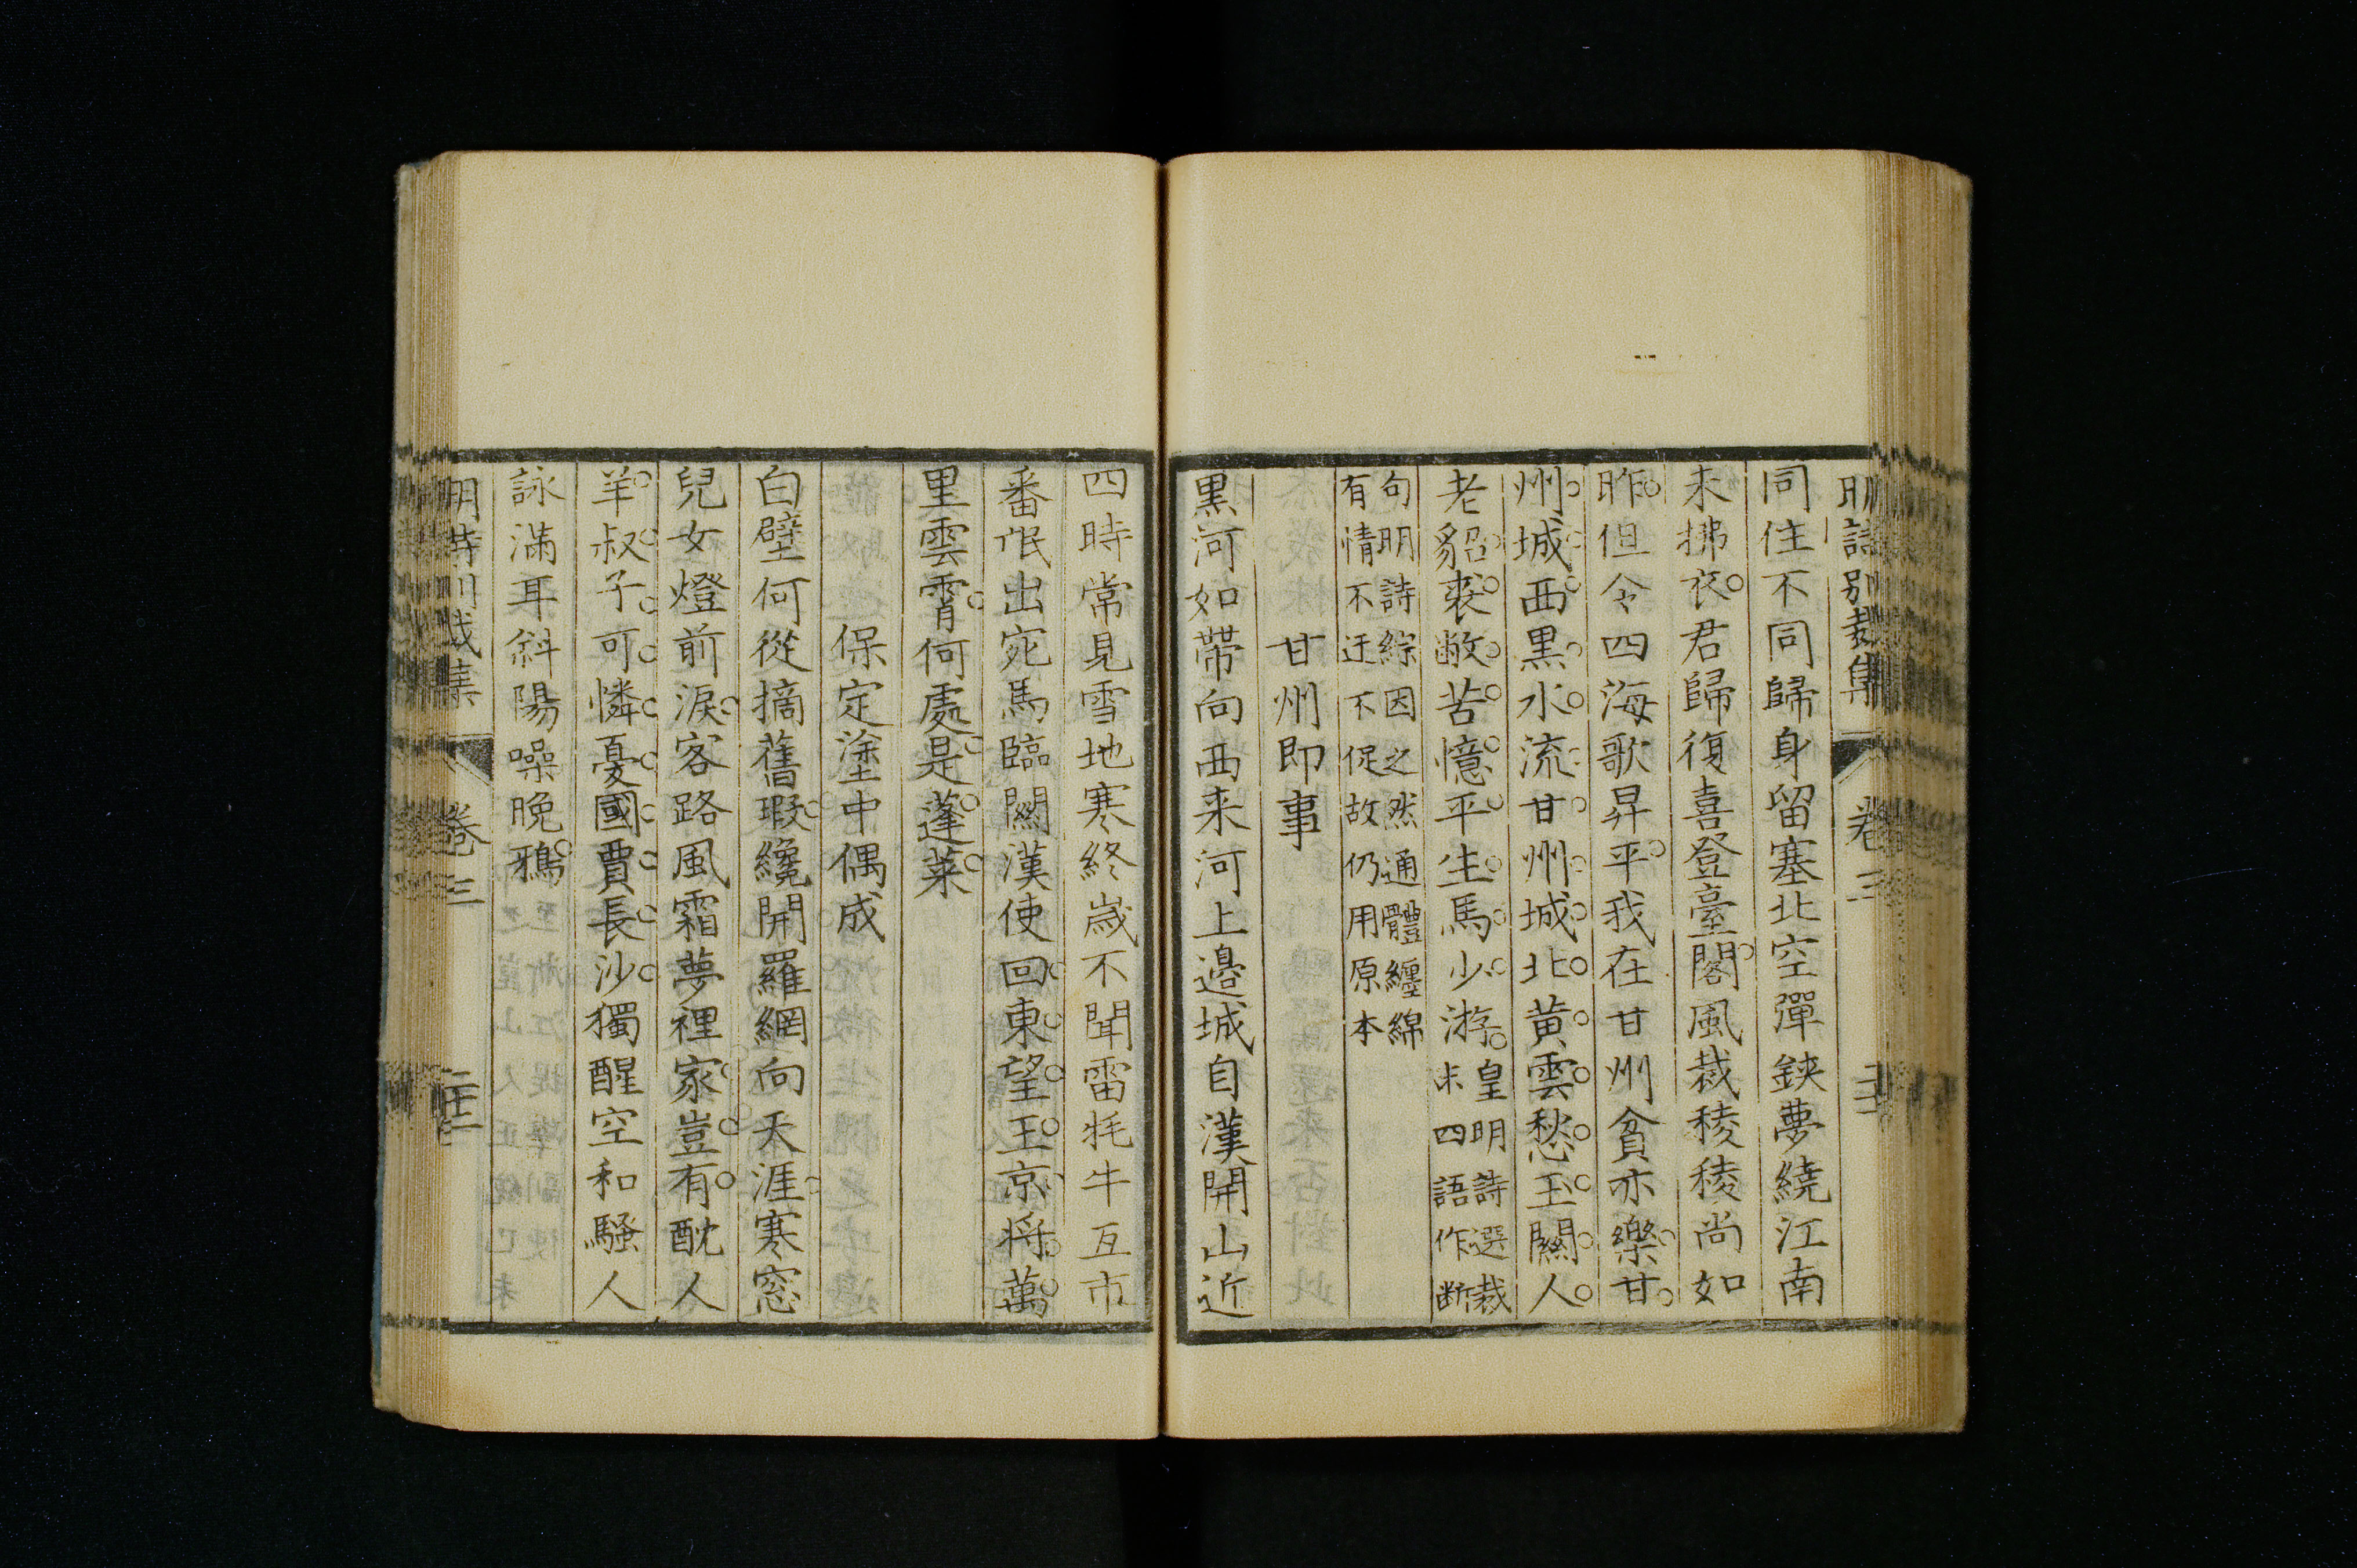 明詩別裁集 卷三
同住不同歸身留塞北空彈鋏夢繞江南
未拂衣君歸復喜登臺閣風裁稜稜尚如
昨但令四海歌昇平我在甘州貧亦樂甘
州城西黑水流甘州城北黃雲愁玉關人
老貂裘敝苦憶平生馬少游皇明詩選裁
末四語作斷
句明詩綜因之然通體纏綿
有情不迂不促故仍用原本
甘州即事
黑河如帶向西来河上邉城自漢開山近
四時常見雪地寒終歲不聞雷牦牛互市
番氓出宛馬臨關漢使回東望玉京将萬
里雲霄何處是蓬莱
保定塗中偶成
白壁何從摘舊瑕纔開羅網向天涯寒窓
兒女燈前淚客路風霜夢裡家豈有酖人
羊叔子可憐憂國賈長沙獨醒空和騷人
詠滿耳斜陽噪晚鴉
明詩別裁集 卷三